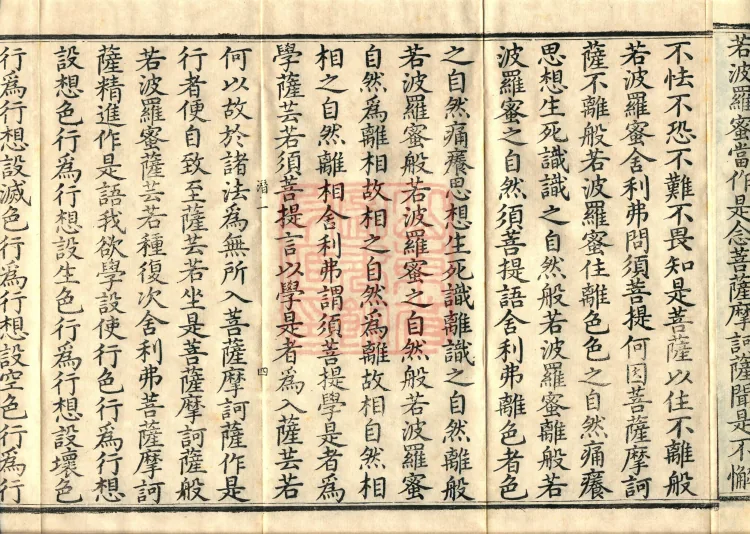 若波羅蜜當作是念菩薩摩訶薩聞是不懈
不怯不恐不難不畏知是菩薩以住不離般
若波羅蜜舍利弗問須菩提何因菩薩摩訶
薩不離般若波羅蜜住離色色之自然痛癢
思想生死識識之自然般若波羅蜜離般若
波羅蜜之自然須菩提語舍利弗離色者色
之自然痛癢思想生死識離識之自然離般
若波羅蜜般若波羅蜜之自然般若波羅蜜
自然為離相故相之自然為離故相自然相
相之自然離相舍利弗謂須菩提學是者為
學薩芸若須菩提言以學是者為入薩芸若
潛一 四
何以故於諸法為無所入菩薩摩訶薩作是
行者便自致至薩芸若坐是菩薩摩訶薩般
若波羅蜜薩芸若種復次舍利弗菩薩摩訶
薩精進作是語我欲學設使行色行為行想
設想色行為行想設生色行為行想設壞色
行為行想設滅色行為行想設空色行為行